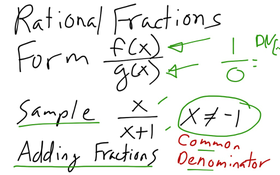 Rational Fractions
Form f(x)/g(x) 1/0 =
Sample x/x+1 x ≠ -1
Adding Fractions Common
Denominator